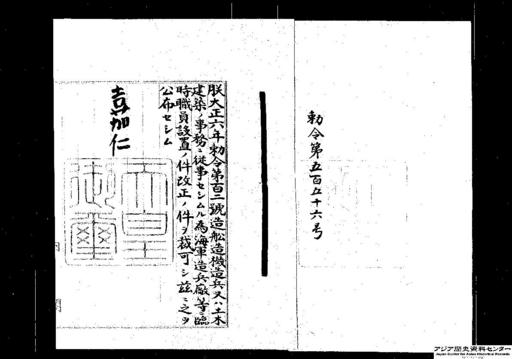 勅令第五百五十六号
朕大正六年勅令第百二號造舩造機造兵又ハ土木
建築ノ事務ニ從事セシムル為海軍造兵廠等ニ臨
時職員設置ノ件改正ノ件ヲ裁可シ茲ニ之ヲ
公布セシム
嘉仁
天皇
御璽
アジア歴史資料センター
Japan Center for Asian Historical Records